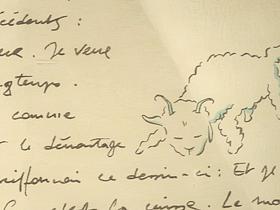 cédents :
Je veux
gtemps.
comme
t le démontage
riffonnai ce dessin-ci : Et je
la caisse. Le mo